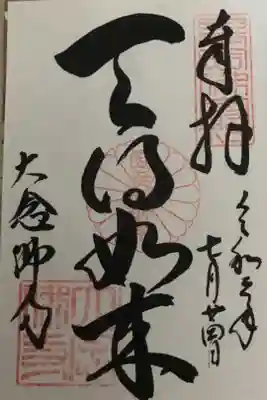 奉拝
令和
七月廿四日
天得如来
大念佛寺